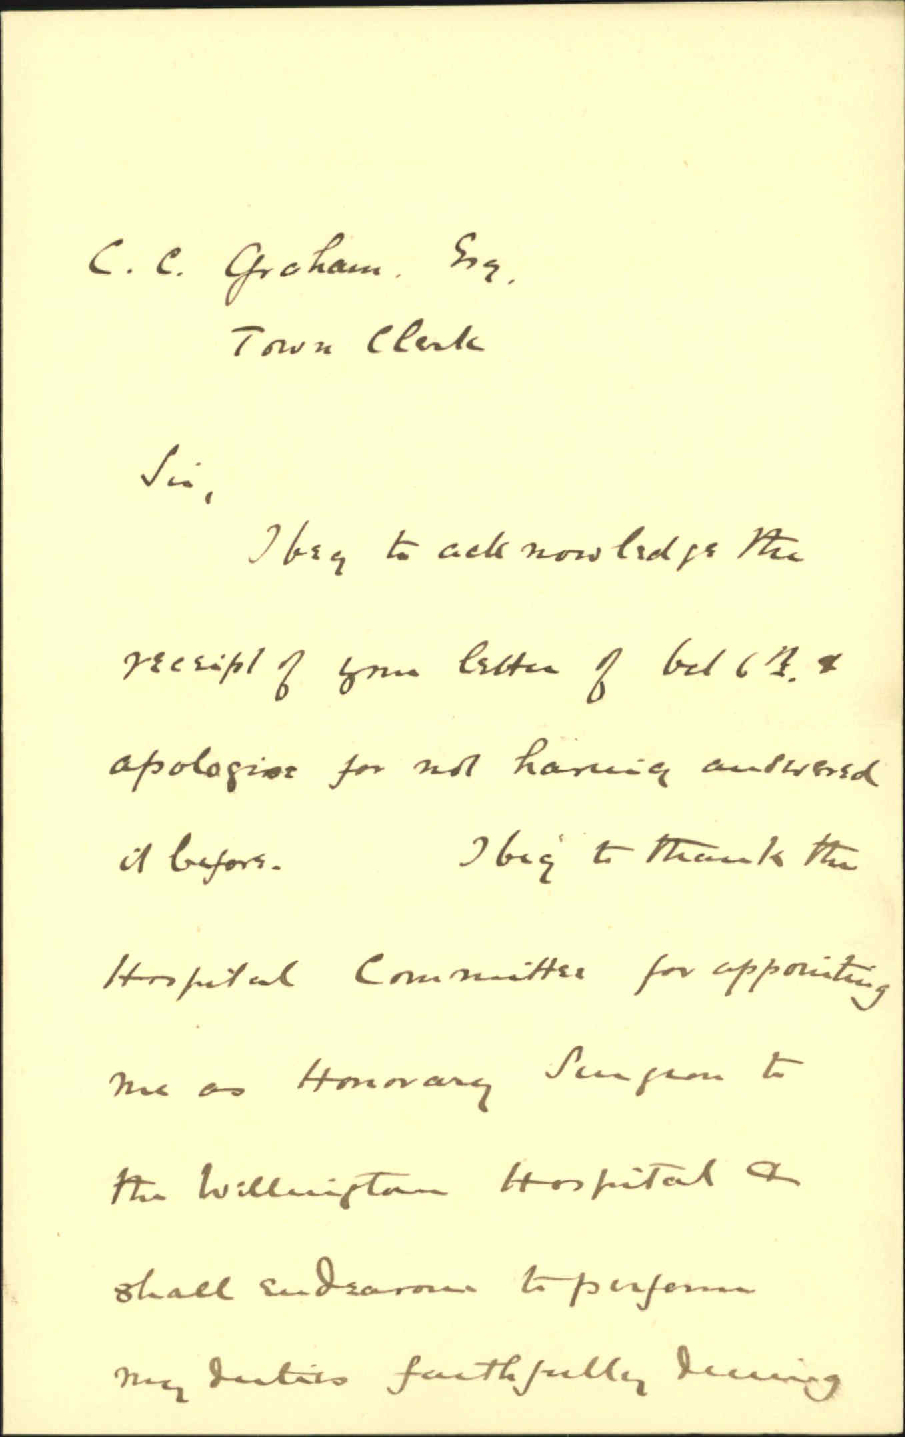 C. C. Graham. Esq.
Town Clerk
Sir,
I beg to acknowledge the
receipt of your letter of Oct 6th. &
apologise for not having answered
it before. I beg to thank the
Hospital Committee for appointing
me as Honorary Surgeon to
the Wellington Hospital &
shall endeavour to perform
my duties faithfully during